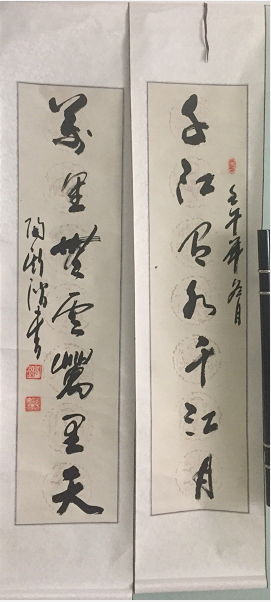 千江有水千江月
壬午年冬月
萬里無雲萬里天
陶
書